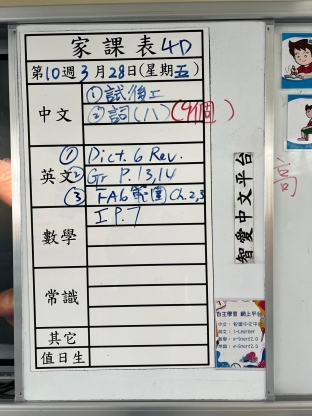 家課表 4D
第10週3月28日(星期五)
中文
①試後工
②詞(八)(9個)
英文
① Dict. 6 Rev.
② Gr P.13,14
③ FA6範圍 Ch.2,3
數學
I P.7
常識
其它
值日生
智愛中文平台
自主學習 網上平台
中文: 智愛中文平台
英文: i-Learner
高